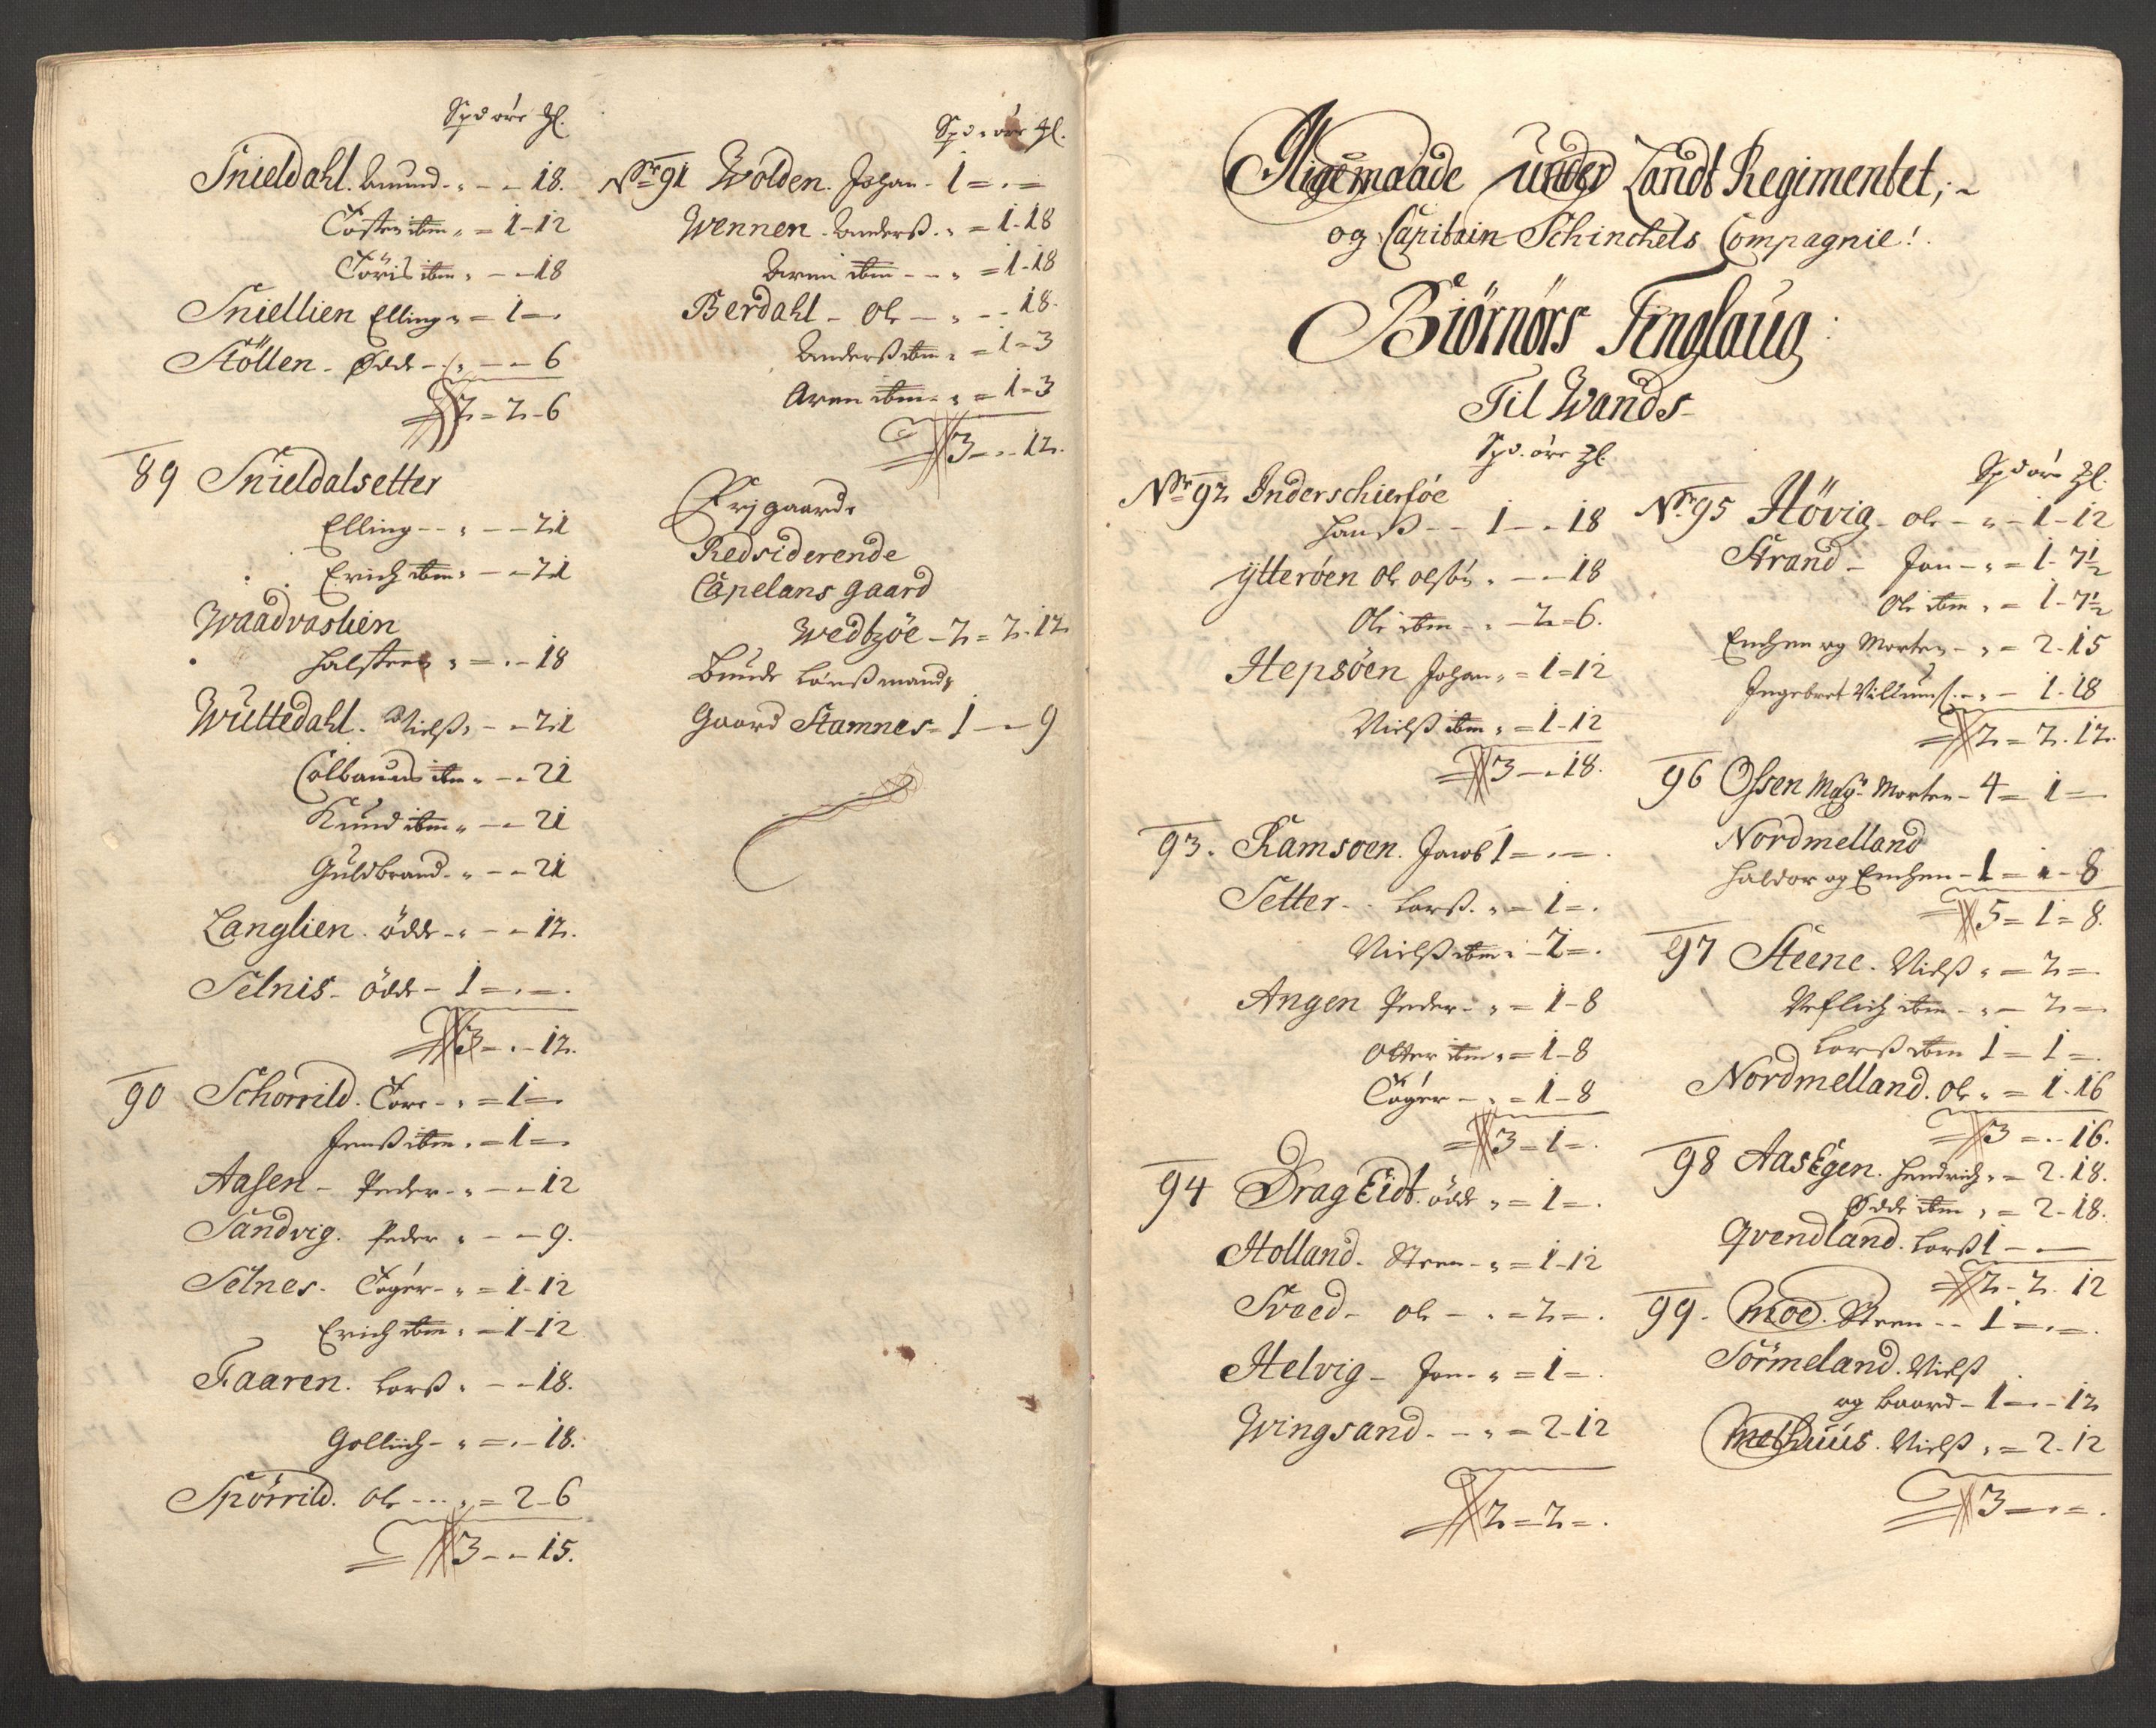 Spd öre Ml.
Snieldahl. Amund - „ - - 18.
Tosten ibm „ = 1-12
Töris ibm „ - - 18
Sniellien Elling „ = 1 - .
Stöllen - Ødde - „ - - 6
2 = 2 - 6
89 Snieldalsetter
Elling - - „ - - 21
Erich ibm „ - - 21
Waadvaslien
Halsten „ = . - 18
Wuttedahl. Nielß „ - - 21
Colbanus ibm „ - - 21
Knud ibm „ - - 21
Guldbrand - „ - - 21
Langlien. ödde - „ - - 12.
Selnis - ödde - 1 = . = .
3 = . - 12.
90 Schorrild. Tore - „ = 1 = .
Jenß ibm „ = 1 = .
Aasen - Peder - „ - - 12
Sandvig. Peder „ - - 9.
Selnes - Toger - „ = 1-12
Erich ibm „ = 1-12
Faaren. Larß „ - - 18.
Gollich - „ = . - 18.
Spörrild. Ole - - - „ = 2-6
3 - - 15.
Spd öre Ml.
Nr 91 Wolden. Johan - 1 = . =
Wennen - Anderß. „ = 1-18
Aren ibm - - „ = 1-18
Berdahl - Ole - „ - - 18.
Anderß ibm „ = 1-3
Aren ibm - „ = 1-3
3 - . - 12.
Frj gaarde
Redsiderende
Capelans gaard
Wedtzöe - 2 = 2.12
Bunde Lenßmands
Gaard Stamnes = 1 - - 9
Ligemaade under Landt Regimentet; -
og Capitain Schinchels Compagnie!
Biörnörs Tinglaug
Til Wands -
Spd. öre Ml.
Nr 92 Inderschierföe
Hanß - - 1 - - 18
ytteröen Ole olsön „ - - 18
Ole ibm - „ - 2 = 6.
Hepsöen Johan „ = 1 = 12
Nielß ibm „ = 1-12
3 - - 18.
93. Ramsoen. Jacob 1 = . = .
Setter - - Larß. „ = 1 = .
Nielß ibm „ - 2 = .
Angen Peder - „ = 1-8
Otter ibm „ = 1-8
Toger - „ = 1-8
3 = 1 = .
94 Drag Eidt. ödde „ = 1 = .
Holland - Sten - „ = 1-12
Sved - ole - „ = 2 = .
Helvig - Jon - „ = 1 = .
Wingsand - - „ = 2-12
2 = 2 = .
Spd öre Ml.
Nr 95 Hövig - ole - „ - 1-12
Strand - Jon - „ = 1 - 7½
Ole ibm „ = 1 - 7½
Enchen og Morten - „ = 2-15
Ingebret Villums. - „ - 1-18
2 = 2.12.
96 Ossen Magr. Morten - 4 = 1 =
Nordmelland
Haldor og Enchen - 1 = 1 - 8
5 = 1 = 8.
97 Steene. Nielß „ = 2 = .
ibm - „ - 2 = .
Larß ibm 1 = 1 = .
Nordmelland. Ole „ = 1-16
3 = . - 16.
98 Aas Egen. Hendrich „ = 2.18.
Ødde ibm „ = 2-18.
Qvendland. Larß 1 - . -
2 - 2. 12
99. Moe. Sten - - 1 = . = .
Sörmeland. Nielß
og Baard - 1 = . - 12
Methuus. Nielß „ = 2-12
3 = . = .